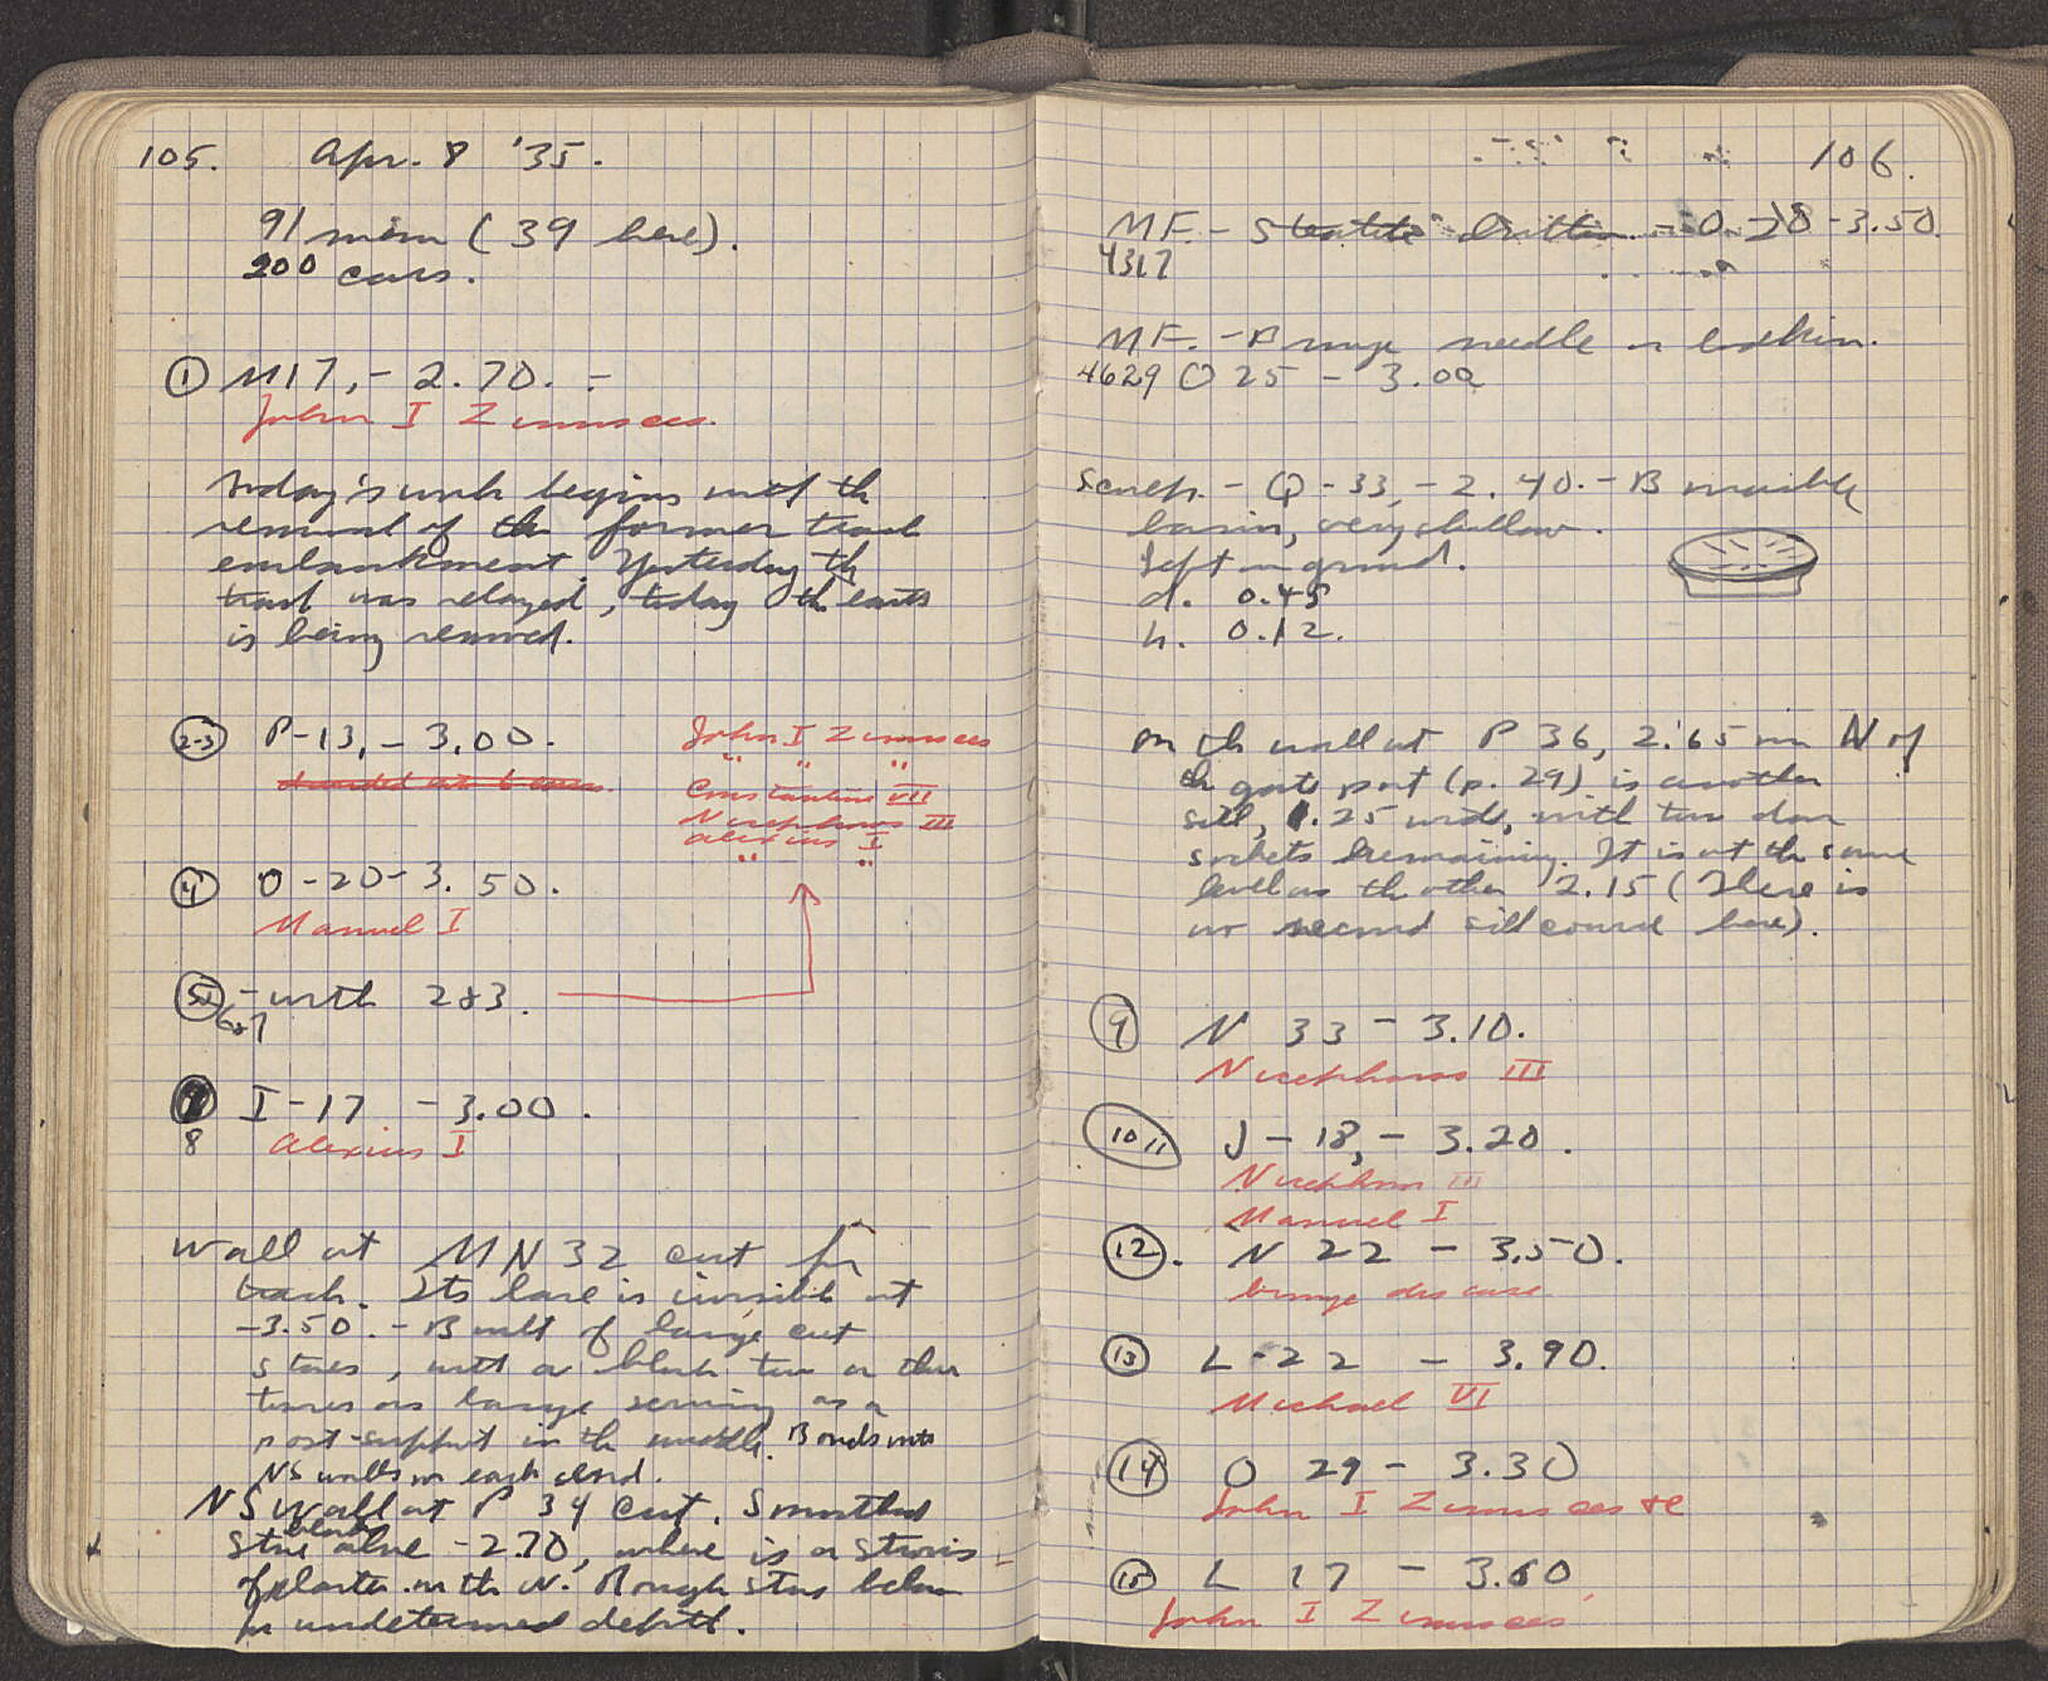 105. Apr. 8 '35.
91 men (39 here).
200 cars.
① M17, - 2.70. -
John I Zimisces.
Today's work begins with the
removal of the former track
embankment. Yesterday the
track was relayed, today the earth
is being removed.
2-3 P-13, - 3.00.
John I Zimisces
" " "
Constantine VII
Nicephoros III
Alexius I
" "
④ O-20-3.50.
Manuel I
5, - with 2&3.
6&7
I-17 - 3.00.
8 Alexius I
Wall at MN32 cut for
track. Its base is invisible at
-3.50. - Built of large cut
stones, with a block two or three
times as large serving as a
post-support in the middle. Bonds into
NS walls on each end.
NS wall at P 34 cut. Smoothed
stone blocks above -2.70, where is a strosis
of plaster on the W. Rough stones below
for undetermined depth.
106.
MF. - Steatite button - O-28-3.50.
4317
MF. - Bronze needle or bodkin.
4629 O 25 - 3.00
Sculp. - Q-33, - 2.40. - B marble
basin, very shallow.
Left in ground.
d. 0.45
h. 0.12.
On the wall at P 36, 2.65 m N of
the gate post (p. 29) is another
sill, 1.25 wide, with two door
sockets remaining. It is at the same
level as the other 2.15 (There is
no second sill course here).
⑨ N 33 - 3.10.
Nicephoros III
10 11 J - 18, - 3.20.
Nicephoros III
Manuel I
⑫. N 22 - 3.50.
bronze disease
⑬ L-22 - 3.90.
Michael VI
⑭ O 29 - 3.30
John I Zimisces
⑮ L 17 - 3.60
John I Zimisces